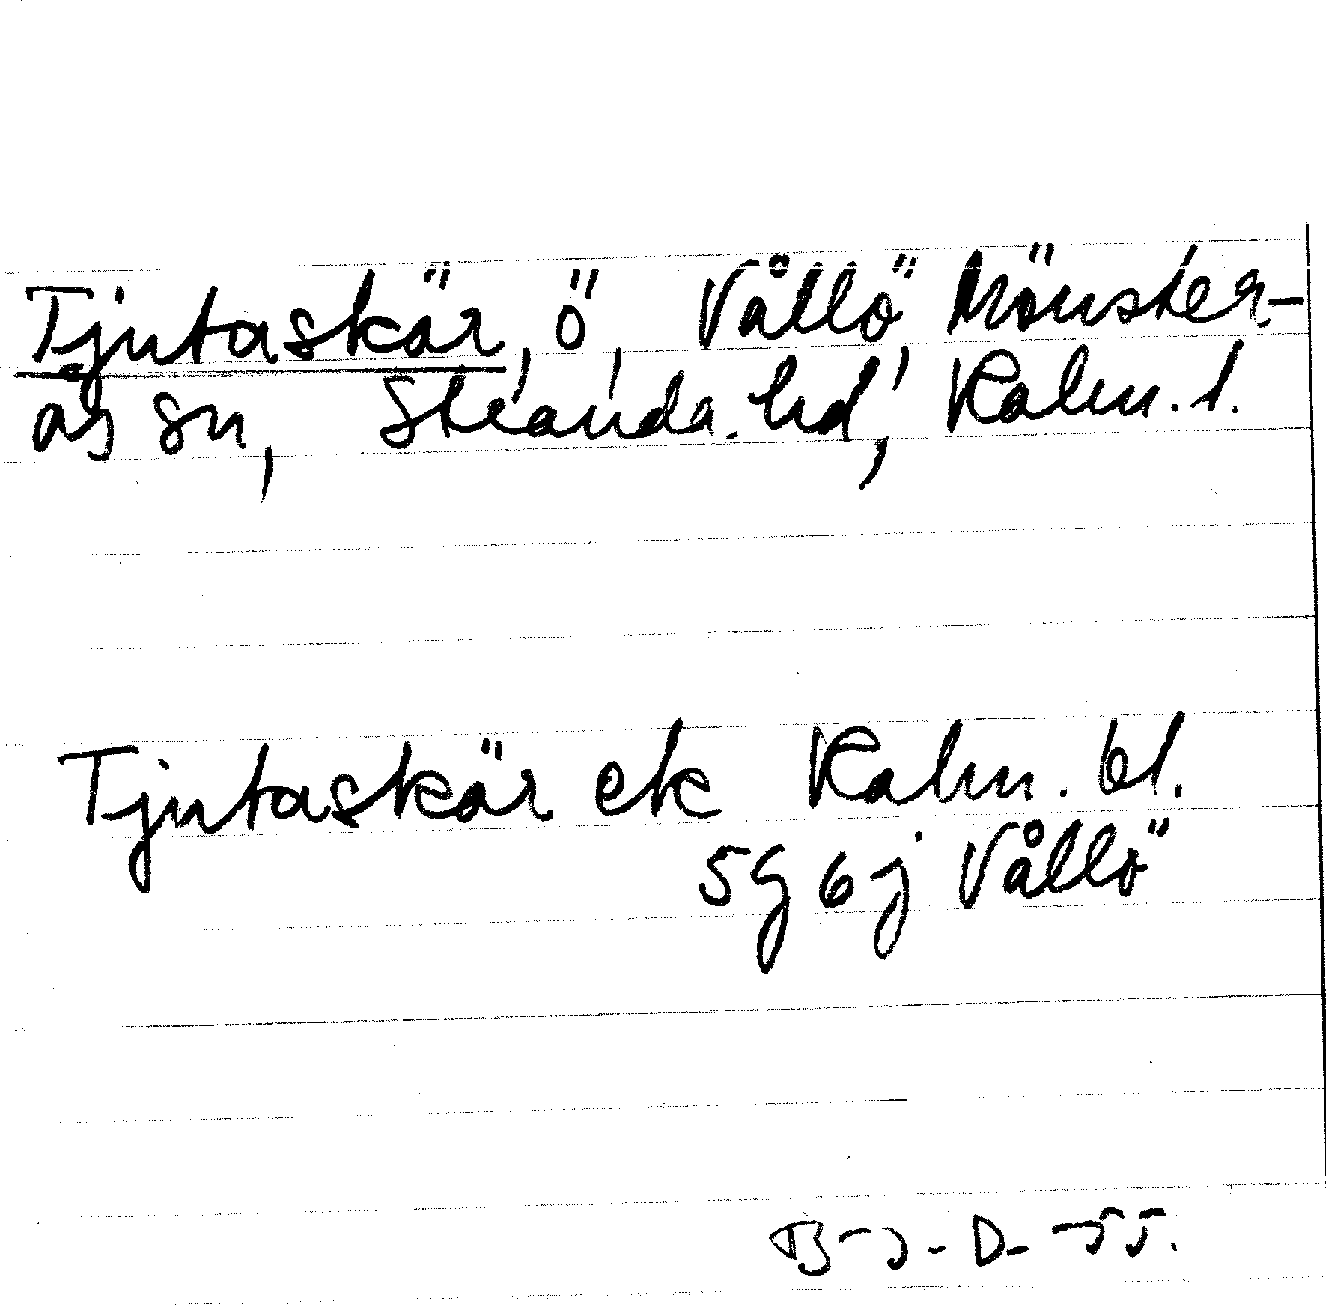 Tjutaskär, ö, Vållö, Mönster-
ås sn, Stranda hd, Kalm. l.
Tjutaskär ek Kalm. bl.
5g 6j Vållö
B-J-D -55.